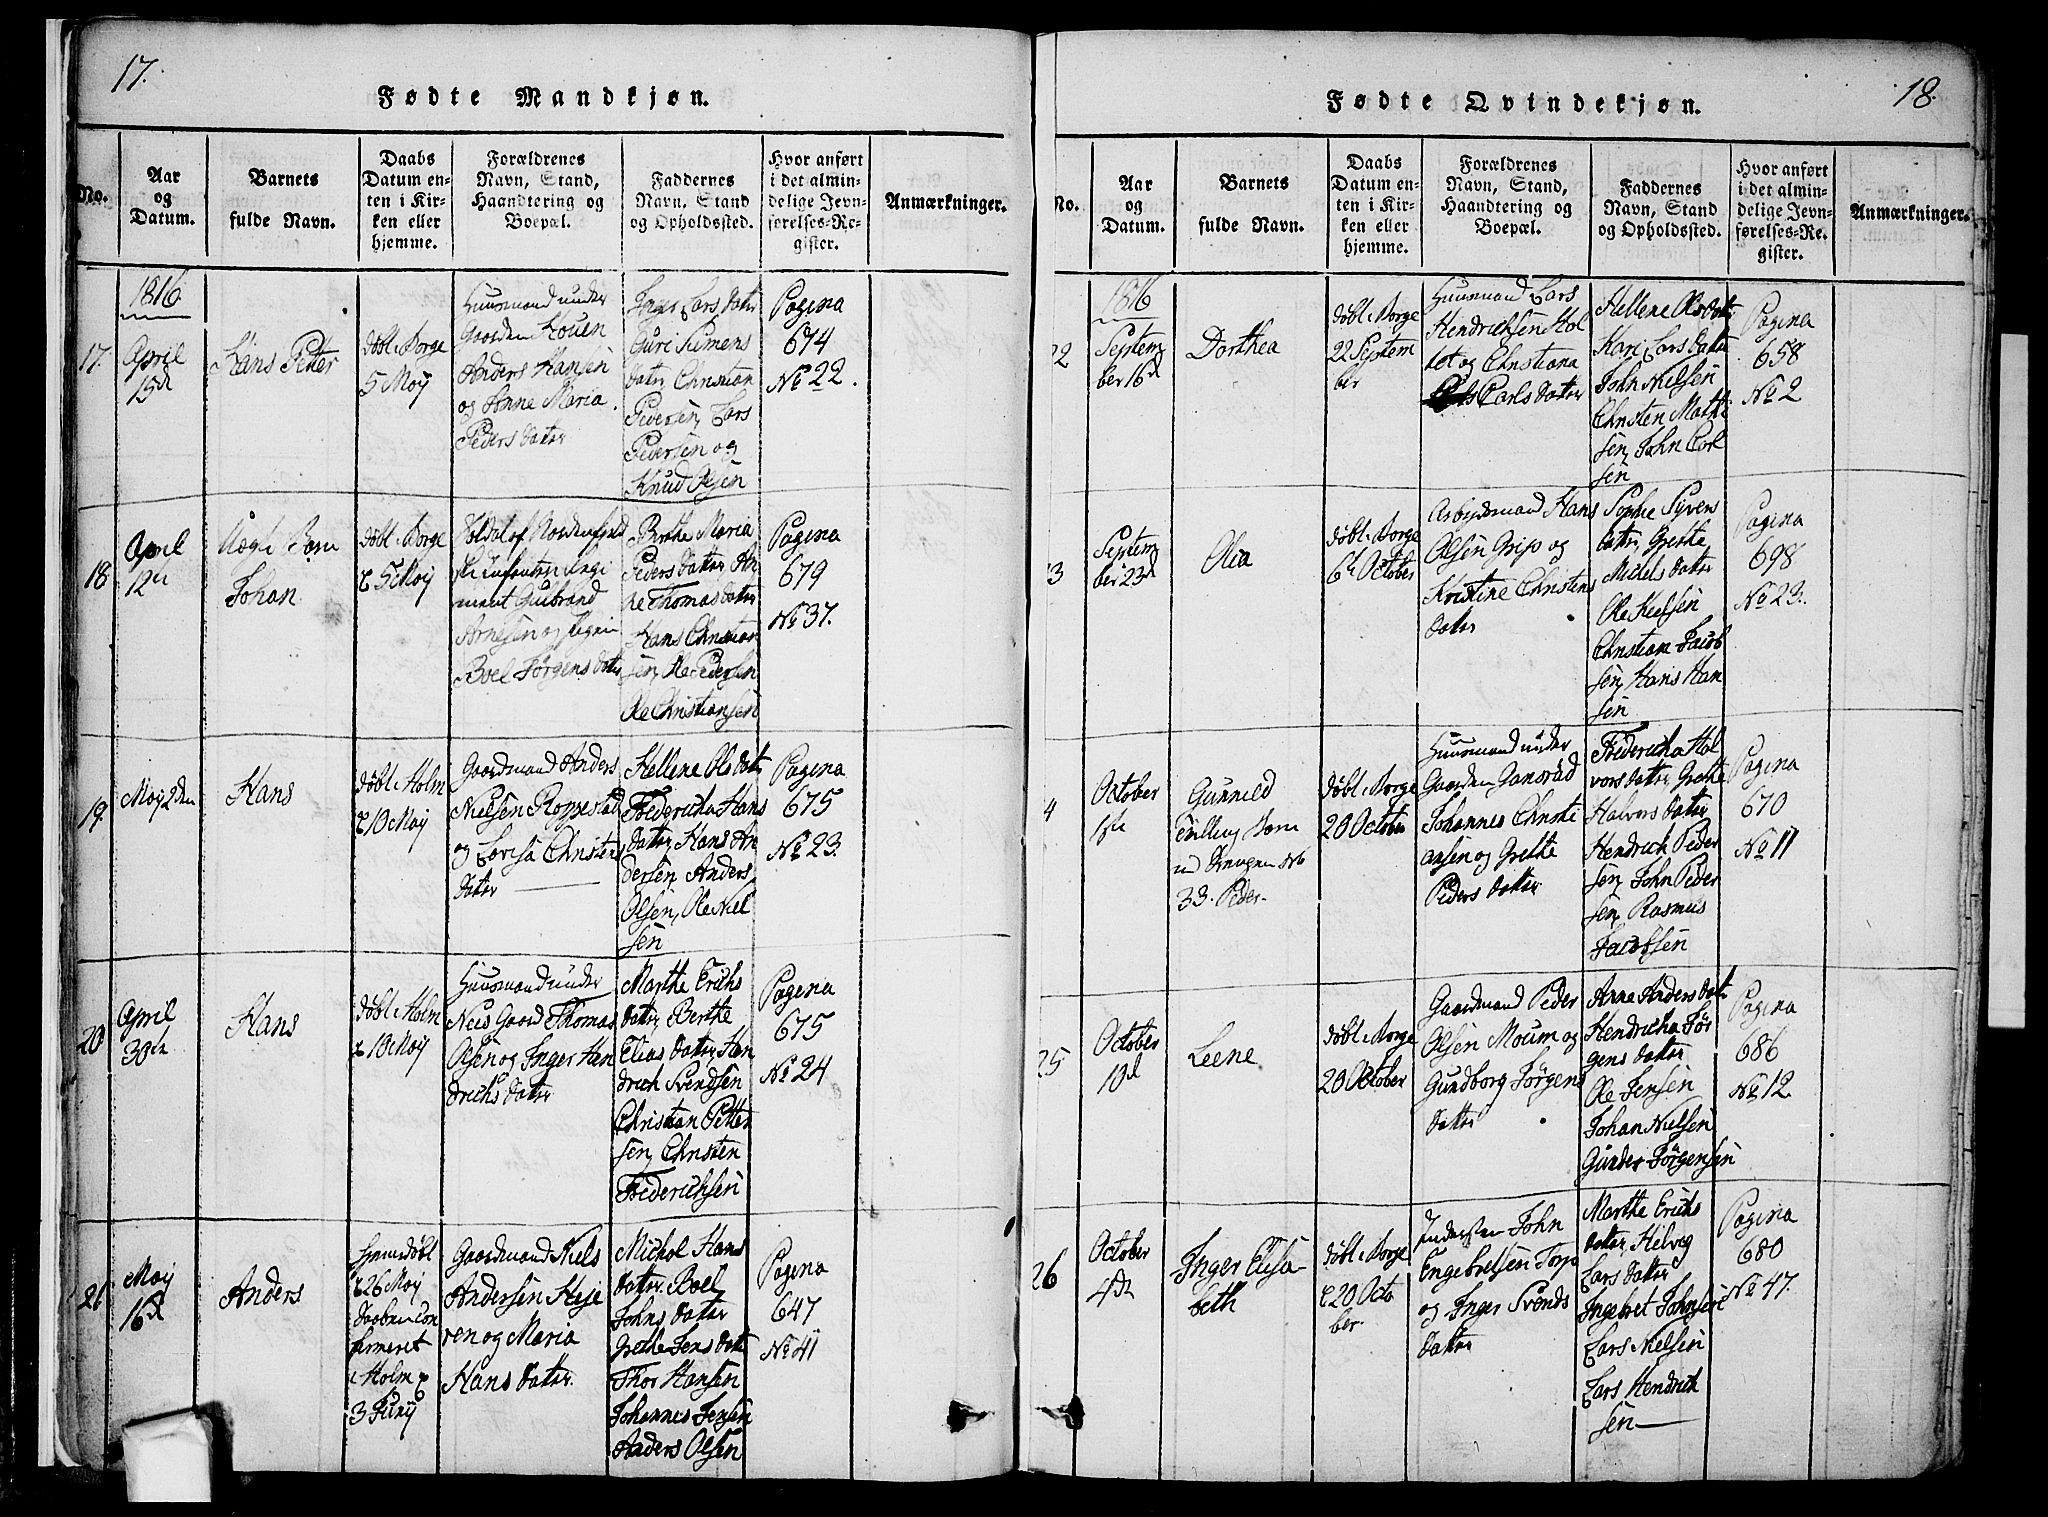 17.
Fødte Mandkjøn.
No.
Aar
og
Datum.
Barnets
fulde Navn.
Daabs
Datum en-
ten i Kir-
ken eller
hjemme.
Forældrenes
Navn, Stand,
Haandtering og
Boepæl.
Faddernes
Navn, Stand
og Opholdssted.
Hvor anført
i det almin-
delige Jevn-
førelses-Re-
gister.
Anmærkninger.
1816.
17.
April
15d
Hans Petter
døbt i Borge
5 Maij
Huusmand under
Gaarden Houen
Anders Hansen
og Anne Maria
Peders datter
Inger Lars datter
Guri Simens
datter, Christian
Pedersen, Lars
Pedersen og
Knud Olsen
Pagina
674
No 22.
18
April
12te
Uægte Barn
Johan
døbt i Borge
d 5 Maij
Soldat af Nordenfield
ske Infanterie Regi
ment Gulbrand
Arnesen og Pigen
Boel Jørgens datter
Berthe Maria
Peders datter, An
ne Thomas datter
Hans Christian
sen, Ole Pedersen
Ole Christiansen
Pagina
679
No 37.
19.
Maij 2den
Hans
døbt i Holm
d 19 Maij
Gaardmand Anders
Nielsen Roppestad
og Lovisa Christens
datter
Hellene Ols datter
Fridericha Hans
datter, Hans An
dersen, Anders
Olsen, Ole Niel
sen
Pagina
675
No 23.
20
April
30te
Hans
døbt i Holm
d 19 Maij
Huusmand under
Nes Gaard Thomas
Olsen og Inger Hen
drichs datter
Marthe Erichs
datter, Berthe
Elias datter, Hen
drich Svendsen
Christian Petter
sen, Christen
Friderichsen
Pagina
675
No 24
21
Maij
16d
Anders
Hjemdøbt
d 26 Maij
Daaben con
fermeret
i Holm d
3 Junij
Gaardmand Niels
Andersen Heje
ren og Maria
Hans datter.
Michol Hans
datter, Boel
Johns datter
Grethe Jens datter
Thor Hansen
Johannes Jensen
Anders Olsen
Pagina
647
No 41
18.
Fødte Qvindekjøn.
No.
Aar
og
Datum.
Barnets
fulde Navn.
Daabs
Datum en-
ten i Kir-
ken eller
hjemme.
Forældrenes
Navn, Stand,
Haandtering og
Boepæl.
Faddernes
Navn, Stand
og Opholdssted.
Hvor anført
i det almin-
delige Jevn-
førelses-Re-
gister.
Anmærkninger.
1816
22
Septem
ber 16d
Dorthea
døbt i Borge
22 Septem
ber
Huusmand Lars
Hendrichsen Hol
tet og Christiana
Carls datter
Hellene Ols datter
Kari Lars datter
John Nielsen
Christen Mathi
sen, John Carl
sen
Pagina
658
No 2
23
Septem
ber 23d
Olea
døbt i Borge
6te October
Arbeydsmand Hans
Olsen Grip og
Kristine Christens
datter
Sophe Syvers
datter, Grethe
Michels datter
Ole Kielsen
Christian Jacob
sen, Hans Han
sen
Pagina
698
No 23.
24
October
1ste
Gunnild
Tvilling Barn
33. Peder
døbt i Borge
20 October
Huusmand under
Gaarden Gansrød
Johannes Christi
ansen og Grethe
Peders datter
Friderica Hal
vors datter, Grethe
Halvors datter
Hendrich Peder
sen, John Peder
sen, Rasmus
Jacobsen
Pagina
670
No 11
25
October
10d
Leene
døbt i Borge
20 October
Gaardmand Peder
Olsen Moum og
Gundborg Jørgens
datter
Anne Anders datter
Hendricha Jør
gens datter
Ole Jensen
Johan Nielsen
Gunder Jørgensen
Pagina
686
No 12.
26
October
4de
Inger Elisa
beth
døbt i Borge
d 20 Octo
ber.
Inderster John
Engebretsen Torp
og Inger Svends
datter
Marthe Erichs
datter, Helvig
Lars datter
Ingebret Johnsen
Lars Nielsen
Lars Hendrich
sen
Pagina
680
No 47.